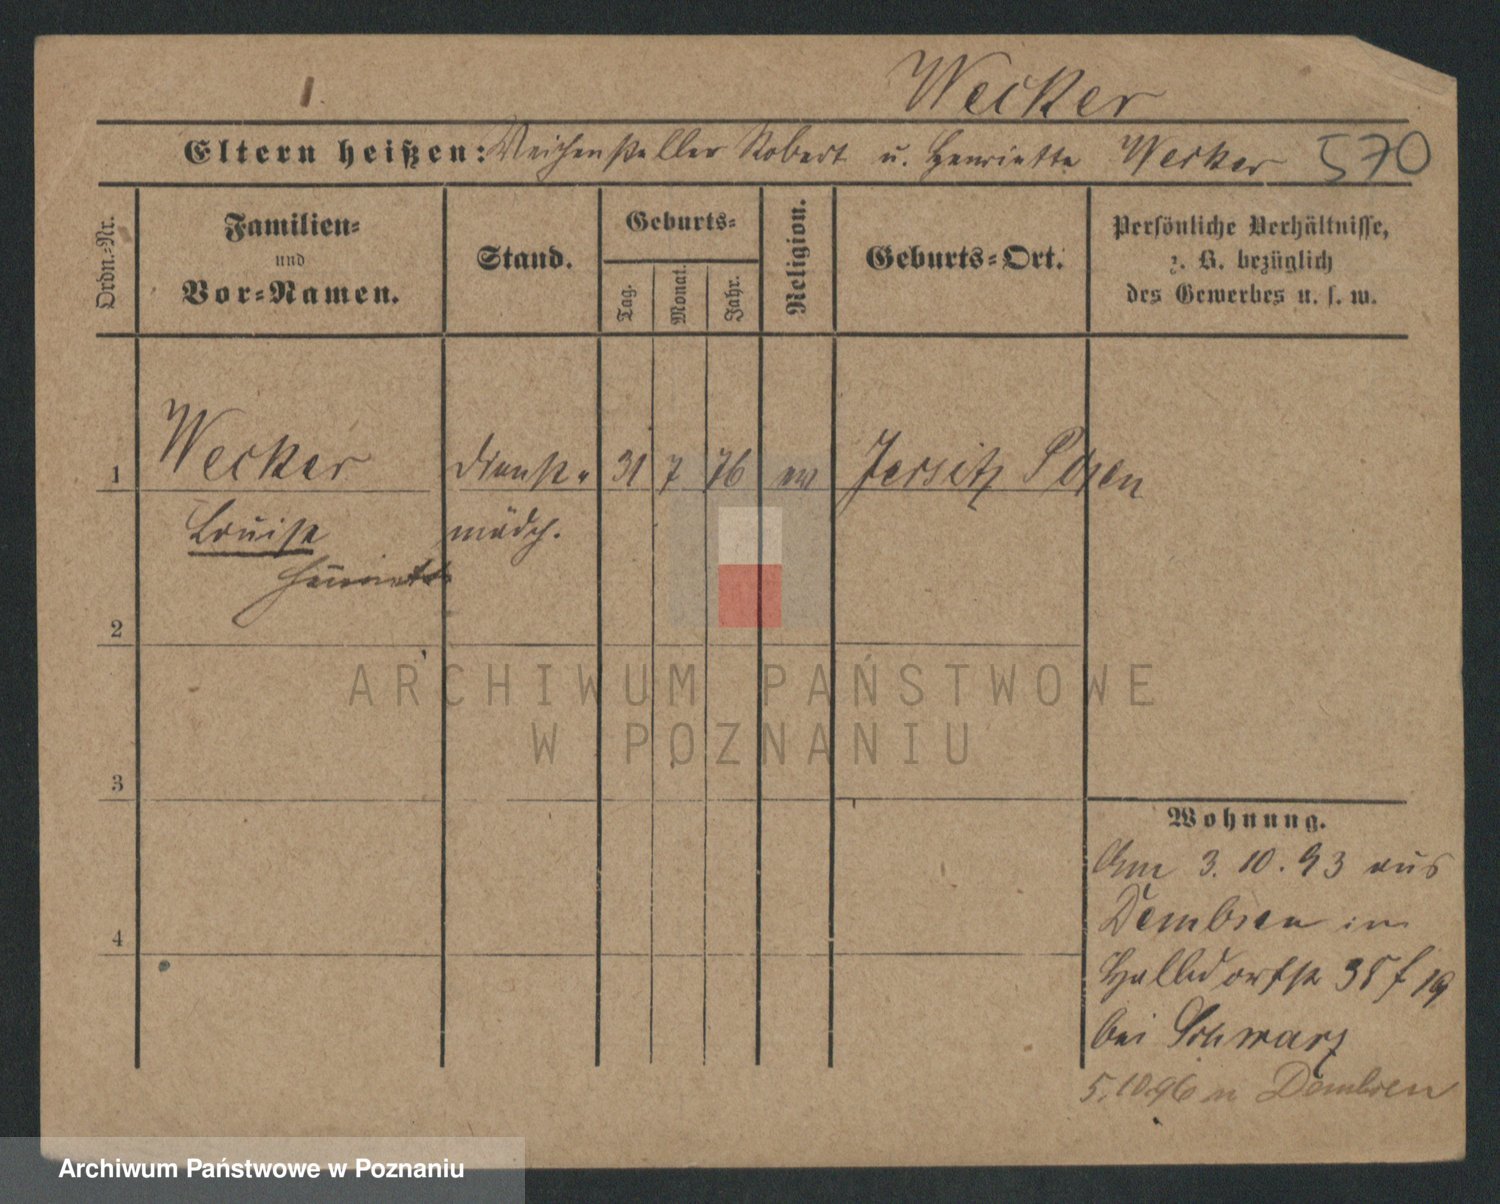 1.
Wecker
Eltern heißen: Weichensteller Robert u. Henriette Wecker 570
Ordn.-Nr.
Familien-
und
Vor-Namen.
Stand.
Geburts-
Tag.
Monat.
Jahr.
Religion.
Geburts-Ort.
Persönliche Verhältnisse,
z. B. bezüglich
des Gewerbes u. s. w.
1 Wecker Dienst- 31 7 76 ev Jersitz Posen
Louise mädch.
Henriette
2
3
4
ARCHIWUM PAŃSTWOWE
W POZNANIU
Wohnung.
Am 3. 10. 93 aus
Dembsen in
Halbdorfstr 35 f 19
bei Schwarz
5.10.96 n Dembsen
Archiwum Państwowe w Poznaniu